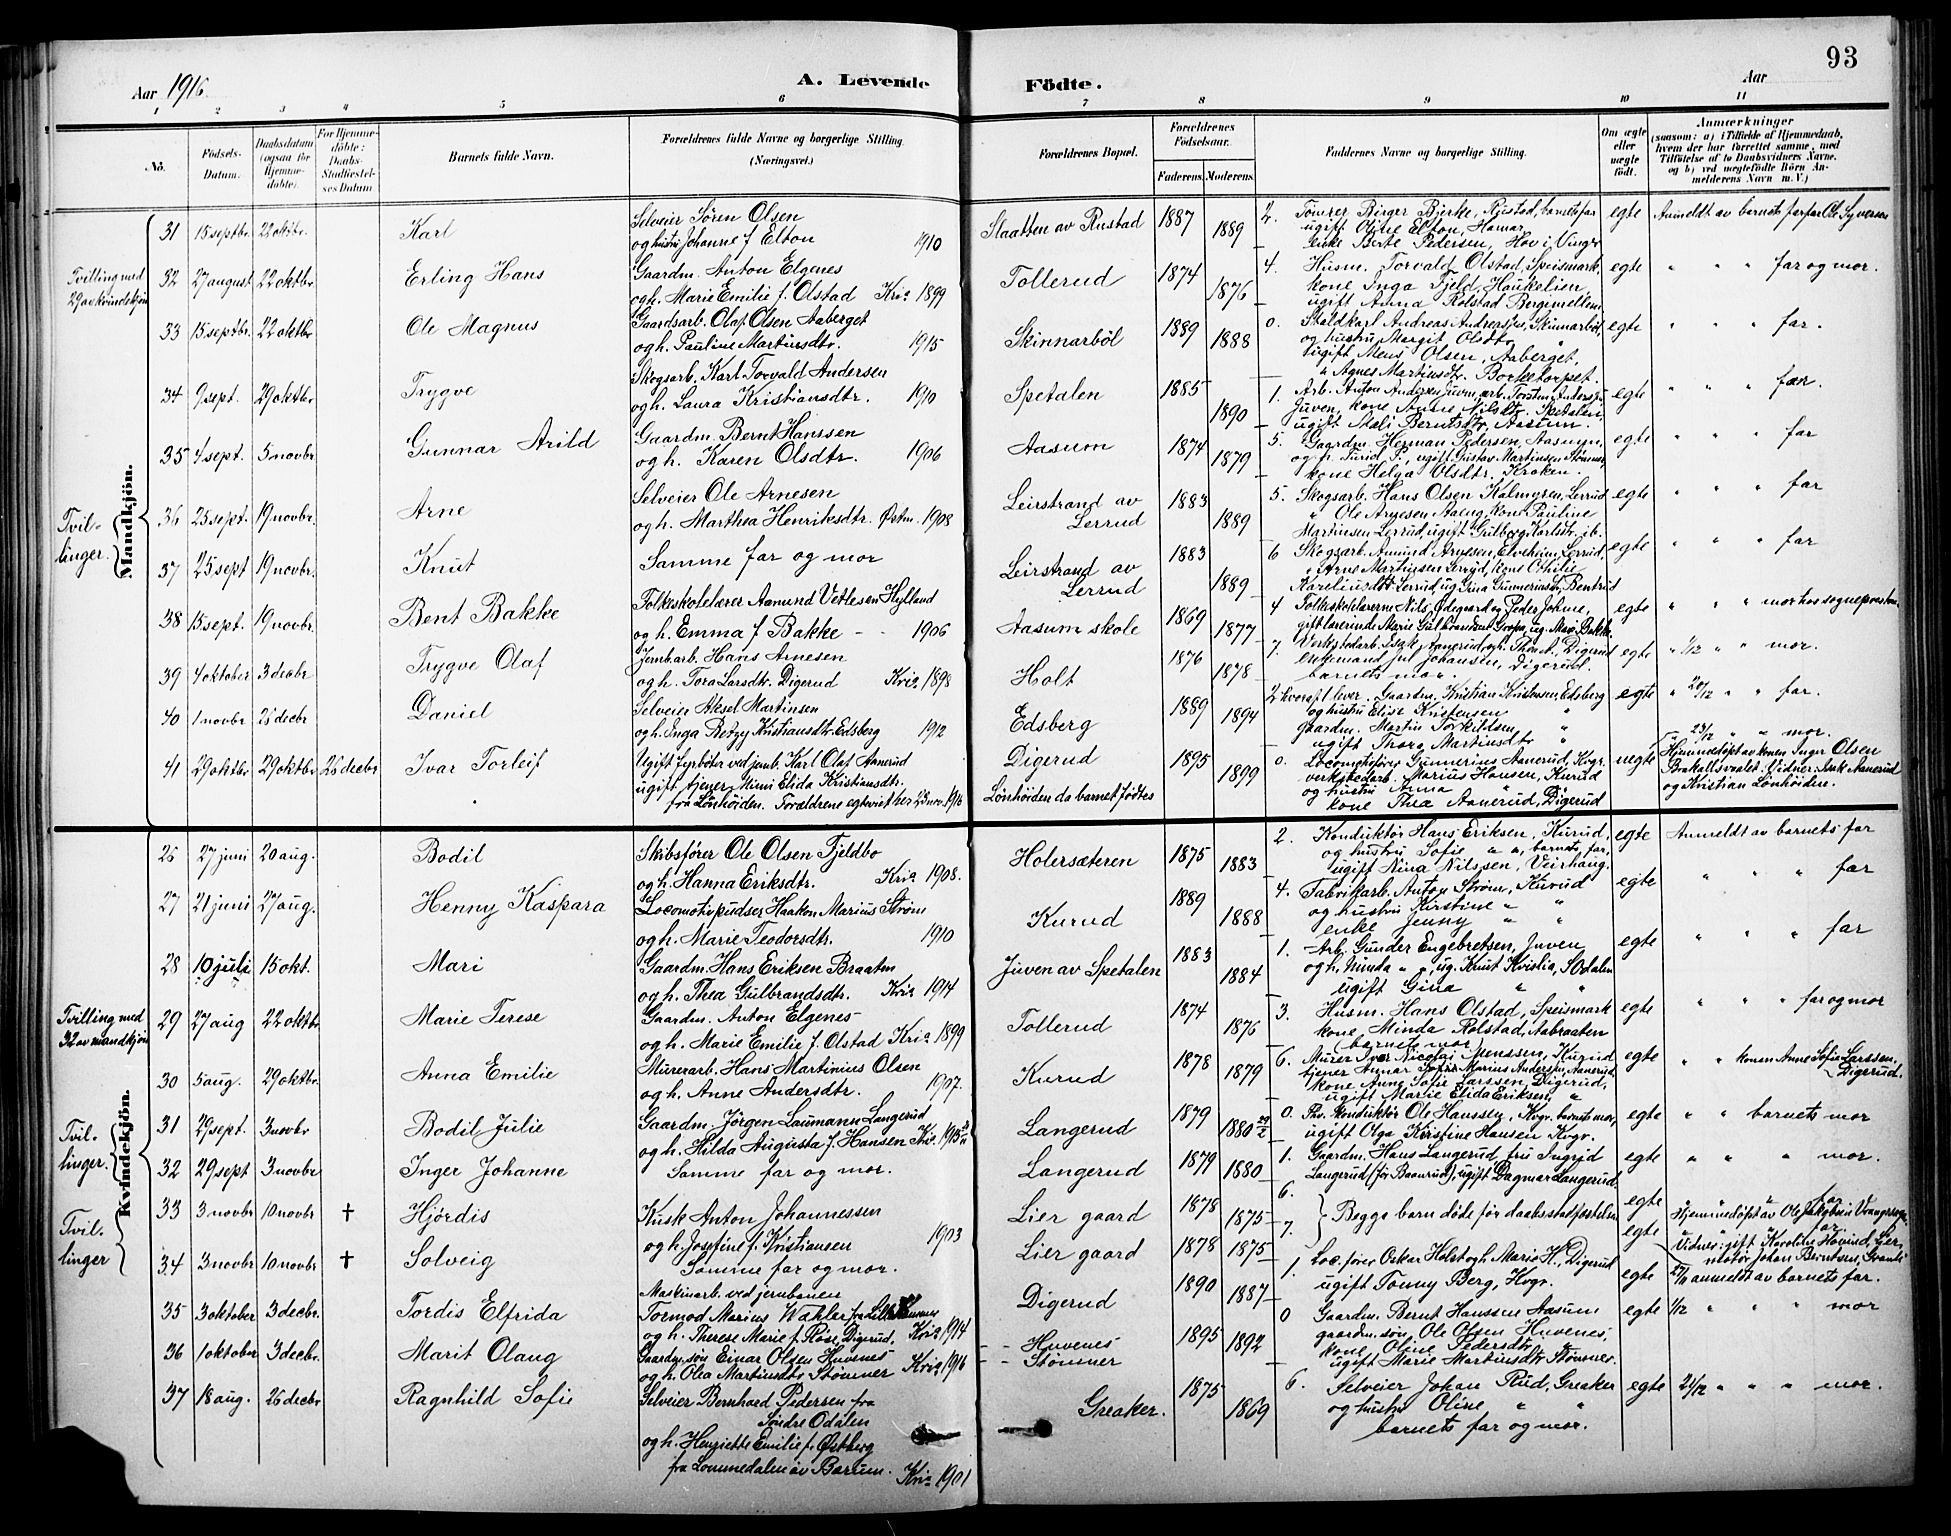 93
Aar 1916.
A. Levende Födte.
Aar
1 2 3 4 5 6 7 8 9 10 11
No.
Födsels-Datum.
Daabsdatum (ogsaa for Hjemme-döbte).
For Hjemme-döbte: Daabs-Stadfæstel-ses Datum
Barnets fulde Navn.
Forældrenes fulde Navne og borgerlige Stilling. (Næringsvei.)
Forældrenes Bopæl.
Forældrenes Födselsaar.
Faderens. Moderens.
Faddernes Navne og borgerlige Stilling.
Om ægte eller uægte födt.
Anmærkninger
(saasom: a) i Tilfælde af Hjemmedaab, hvem der har forrettet samme, med Tilföielse af to Daabsvidners Navne, og b) ved uægtefödte Börn Anmelderens Navn m. V.)
Mandkjön.
31 15 septbr. 22 oktbr. Karl
Selveier Sören Olsen
og hustru Johanne f. Elton 1910
Slaatten av Rustad 1887 1889
2. Tömrer Birger Bjerke, Rustad, barnets far
ugift Oline Elton, Hamar,
enke Berte Pedersen, Hov i Vinger
egte Anmeldt av barnets farfar Ole Syversen
Tvilling med 29 av kvindekjön
32 27 august 22 oktbr Erling Hans
Gaardm. Anton Elgenes
og h. Marie Emilie f. Olstad Kria 1899
Tollerud 1874 1876
4. Husm. Torvald Olstad, Speismark,
kone Inga Fjeld, Haukelien
ugift Anna Rolstad Bergimellem
egte " " " far og mor.
33 15 septbr. 22 oktbr Ole Magnus
Gaardsarb. Olaf Olsen Aaberget
og h. Pauline Martinsdtr. 1915
Skinnarböl 1889 1888
0. Staldkarl Andreas Andersen, Skinnarböl,
og hustru Margit Olsdtr. "
ugift Mens Olsen, Aaberget,
" Agnes Martinsdtr. Borketorpet.
egte " " " far.
34 9 sept. 29 oktbr Trygve
Skogsarb. Karl Torvald Andersen
og h. Laura Kristiansdtr. 1910
Spetalen 1885 1890
1. Arb. Anton Andersen Juven, arb. Torsten Andersen
Juven, kone Anne Nilsdtr. Spetalen,
ugift Berntsdtr. Aasum.
egte " " " far.
35 4 sept. 5 novbr Gunnar Arild
Gaardm. Bernt Hanssen
og h. Karen Olsdtr. 1906
Aasum 1874 1879
5. Gaardm. Herman Pedersen, Aasum,
ugift Gustav Martinsen Stömner,
kone Helga Olsdtr. Kroken.
egte " " " far
Tvil-linger.
36 25 sept. 19 novbr. Arne
Selveier Ole Arnesen
og h. Marthea Henriksdtr. Østm. 1908
Leirstrand av Lerrud 1883 1889
5. Skogsarb. Hans Olsen Lerrud
" Ole Arnesen kone Pauline
Martinsen Lerrud, ugift Gulborg Karlsdtr. ib.
egte " " " far
37 25 sept 19 novbr. Knut
Samme far og mor
Leirstrand av Lerrud 1883 1889
6 Skogsarb. Amund Arnesen, Elveheim, Lerrud,
" Arne Martinsen Lerrud, kone Othilie
Lerrud, ug. Gina Gunneriusen, Bentrud
egte " " " far
38 15 sept. 19 novbr. Bent Bakke
Folkeskolelærer Aamund Vetlesen Hylland
og h. Emma f. Bakke - - 1906
Aasum skole 1869 1877
4 Folkeskolelærerne Nils Ødegaard og Peder Johne,
gift lærerinde Marie Gulbrandsen ug. Mari Bakke
egte " " " mor hos sognepresten
39 4 oktober 3 decbr Trygve Olaf
Jernbarb. Hans Arnesen
og h. Tora Larsdtr. Digerud Kria 1898
Holt 1876 1878
7. Verkstedarb. Isak Aanerud, og h. Thea A., Digerud
enkemand Jul Johansen, Digerud.
barnets mor.
egte " 1/12 " " mor.
40 1 novbr 25 decbr Daniel
Selveier Aksel Martinsen
og h. Inga Betzy Kristiansdtr. Edsberg 1912
Edsberg 1889 1894
2 hvoraf 1 lever. Gaardm. Kristian Kristensen, Edsberg
og hustru Elise Kristensen "
gaardm. Martin Torkildsen "
ugift Thora Martinsdtr "
egte " 20/12 " " far.
41 29 oktbr 29 oktbr 26 decbr Ivar Torleif
Ugift fyrböter ved jernb. Karl Olaf Aanerud
ugift tjener Mimi Elida Kristiansdtr.
fra Lönhöiden. Forældrene egtviet her 28 nov. 1916
Digerud
Lönhöiden da barnet födtes 1895 1899
0. Locomotivförer Gunnerius Aanerud, Kvgr.
verkstedarb. Marius Hansen, Kurud
og hustru Anna " "
kone Thea Aanerud, Digerud
uegte " 23/12 " " mor.
Hjemmedöpt av konen Inger Olsen
Vidner: Isak Aanerud
og Kristian Lönhöiden.
Kvindekjön.
26 27 juni 20 aug. Bodil
Skibsförer Ole Olsen Fjeldbo
og h. Hanna Eriksdtr. Kria 1908.
Holersæteren 1875 1883
2. Konduktör Hans Eriksen, Kurud,
og hustru Sofie " ", barnets far,
ugift Nina Nilssen, Veirhaug.
egte Anmeldt av barnets far
27 21 juni 27 aug. Henny Kaspara
Locomotivpudser Haakon Marius Ström
og h. Marie Teodorsdtr. 1910
Kurud 1889 1888
4. Fabrikarb. Anton Ström, Kurud
og hustru Kirstine " "
enke Jenny " "
egte " " " far
28 10 juli 15 okt. Mari
Gaardm. Hans Eriksen Braaten
og h. Thea Gulbrandsdtr. Kria 1914
Juven av Spetalen 1883 1884
1. Arb. Gunder Engebretsen, Juven
og h. Minda " ", ug. Knut Kvislia, S. Odalen
ugift Gina " "
egte " " " far
Tvilling med 32 av mandkjön
29 27 aug 22 oktbr. Marie Terese
Gaardm. Anton Elgenes
og h. Marie Emilie f. Olstad Kria 1899
Tollerud 1874 1876
3. Husm. Hans Olstad, Speismark
kone Minda Rolstad, Aabraaten
(barnets mor)
egte " " " far og mor
30 5 aug. 29 oktbr. Anna Emilie
Murerarb. Hans Martinius Olsen
og h. Anne Andersdtr. 1907.
Kurud 1878 1879
6. Murer Iver Nicolai Jensen, Kurud
tjener Marius Andersen, Aanerud
kone Anne Sofie Larssen, Digerud,
ugift Marie Elida Eriksen, "
egte " " konen Anne Sofie Larssen, Digerud.
Tvil-linger.
31 29 sept. 3 novbr Bodil Julie
Gaardm. Jörgen Laumann Langerud
og h. Hilda Augusta f. Hansen 1905
Langerud 1879 1880
0. Konduktör Ole Hanssen, Kvgr. barnets mor,
ugift Olga Kirstine Hansen Kvgr.
egte " " barnets mor
32 29 sept 3 novbr Inger Johanne
Samme far og mor.
Langerud 1879 1880
1. Gaardm. Hans Langerud fru Ingrid
Langerud (för Baanrud), ugift Dagmar Langerud.
egte " " " mor.
Tvil-linger
33 3 novbr 10 novbr † Hjördis
Kusk Anton Johannessen
og h. Josefine f. Kristiansen 1903
Lier gaard 1878 1875
6. Begge barn döde för daabsstadfæstelsen
egte " " " far
Hjemmedöpt av Ole Jakobsen Vrangersagen
34 3 novbr 10 novbr † Solveig
Samme far og mor.
Lier gaard 1878 1875
7.
egte
Vidner: gift Karoline Hovind, Lier,
35 3 oktober 3 decbr. Tordis Elfrida
Maskinarb. ved jernbanen
Tormod Marius Wahler fra Lillehammer
og h. Therese Marie f. Röse, Digerud, Kria 1914
Digerud 1890 1887
1. Loc. förer Oskar Holst og h. Marie H., Digerud
ugift Tonny Berg, Kvgr.
egte anmeldt av barnets far.
36 1 oktober 3 decbr. Marit Olaug
Gaardm. sön Einar Olsen Huvenes
og h. Olea Martinsdtr. Stömner Kria 1916
- - Huvenes
- - Stömner 1895 1892
0 Gaardm. Bernt Hanssen Aasum
gaardm. sön Ole Olsen Huvenes,
kone Oline Pedersdtr. "
ugift Marie Martinsdtr Stömner.
egte 1/12 " " " mor
37 18 aug. 26 decbr Ragnhild Sofie
Selveier Bernhard Pedersen fra
Söndre Odalen
og h. Henriette Emilie f. Østberg
fra Lommedalen av Bærum. Kria 1901
Greaker. 1875 1869
6. Selveier Johan Rud, Greaker
og hustru Oline " "
barnets far og mor.
egte 21/12 " " " mor.